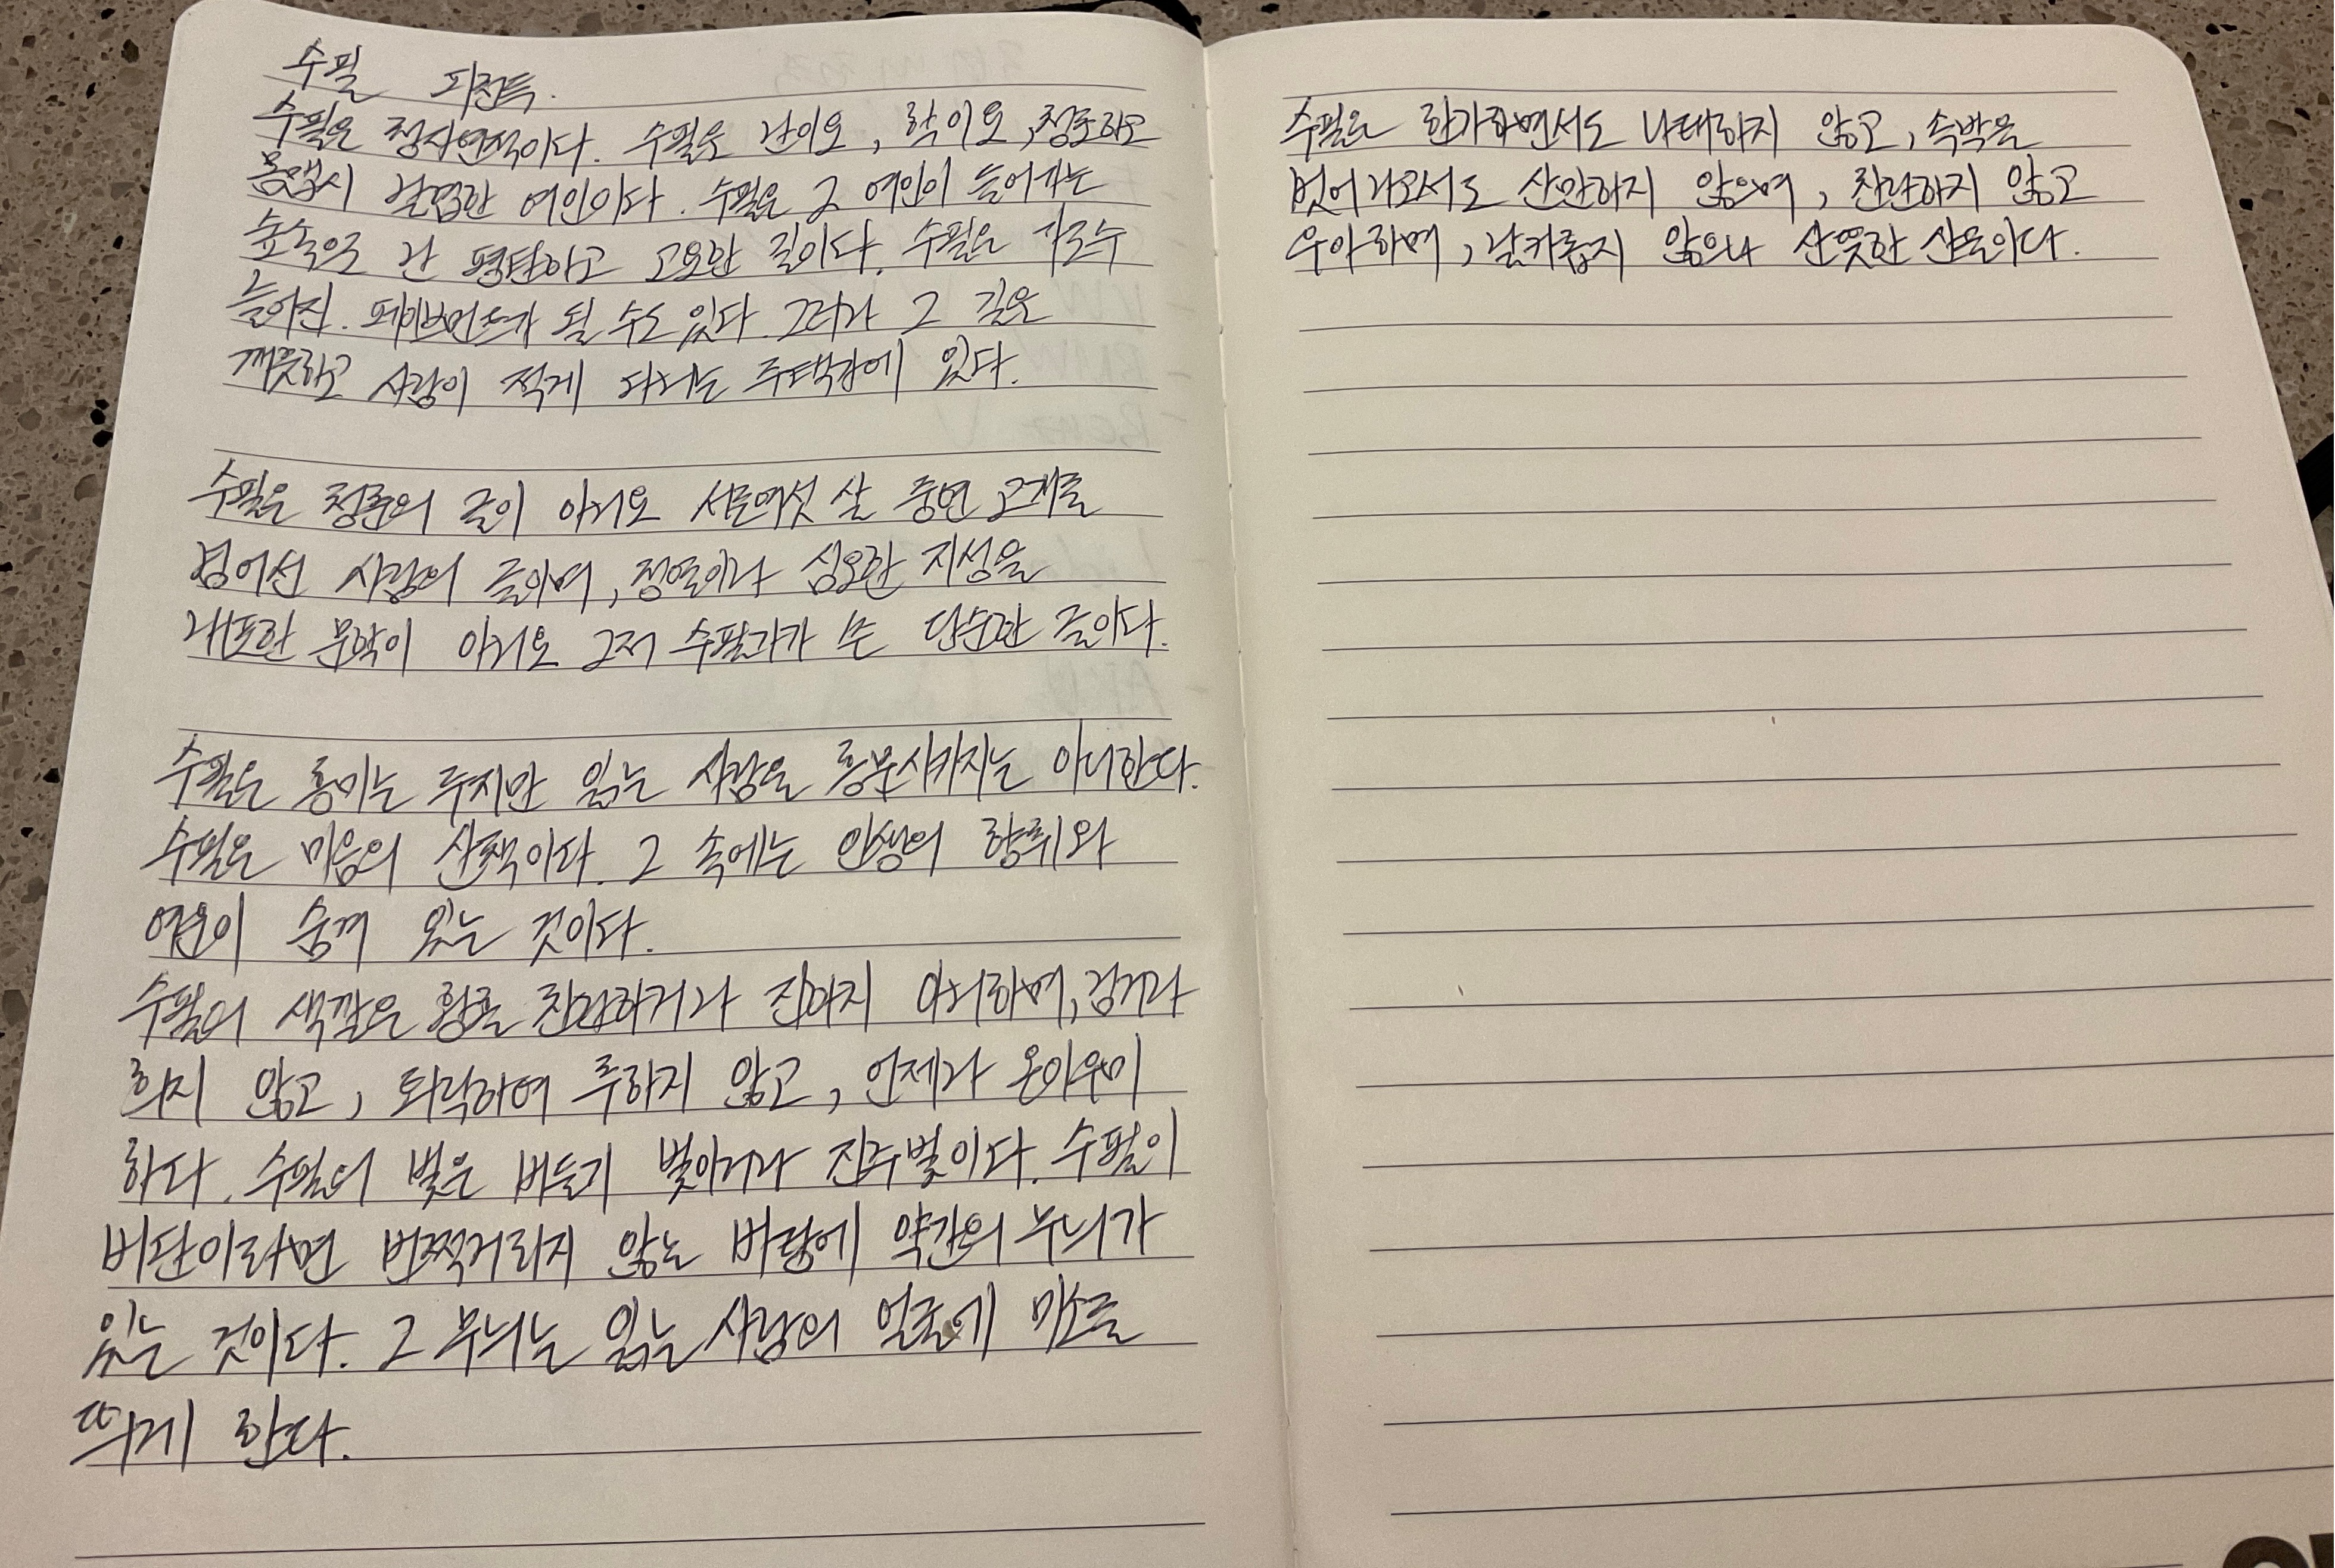 수필 피천득.
수필은 청자연적이다. 수필은 난이오, 학이오, 청초하고
몸맵시 날렵한 여인이다. 수필은 그 여인이 들어가는
숲속으로 난 평탄하고 고요한 길이다. 수필은 가로수
늘어진. 페이브먼트가 될 수도 있다. 그러나 그 길은
깨끗하고 사람이 적게 다니는 주택가에 있다.
수필은 청춘의 글이 아니오 서른여섯 살 중년 고개를
넘어선 사람의 글이며, 정열이나 심오한 지성을
내포한 문학이 아니오 그저 수필가가 쓴 단순한 글이다.
수필은 흥미는 주지만 읽는 사람을 흥분시키지는 아니한다.
수필은 마음의 산책이다. 그 속에는 인생의 향취와
여운이 숨겨 있는 것이다.
수필의 색깔은 황홀 찬란하거나 진하지 아니하며, 검거나
희지 않고, 퇴락하여 추하지 않고, 언제나 온아우미
하다. 수필의 빛은 비둘기 빛이거나 진주빛이다. 수필이
비단이라면 번쩍거리지 않는 바탕에 약간의 무늬가
있는 것이다. 그 무늬는 읽는 사람의 얼굴에 미소를
띄게 한다.
수필은 한가하면서도 나태하지 않고, 속박을
벗어나오서도 산만하지 않으며, 찬란하지 않고
우아하며, 날카롭지 않으나 산뜻한 산문이다.